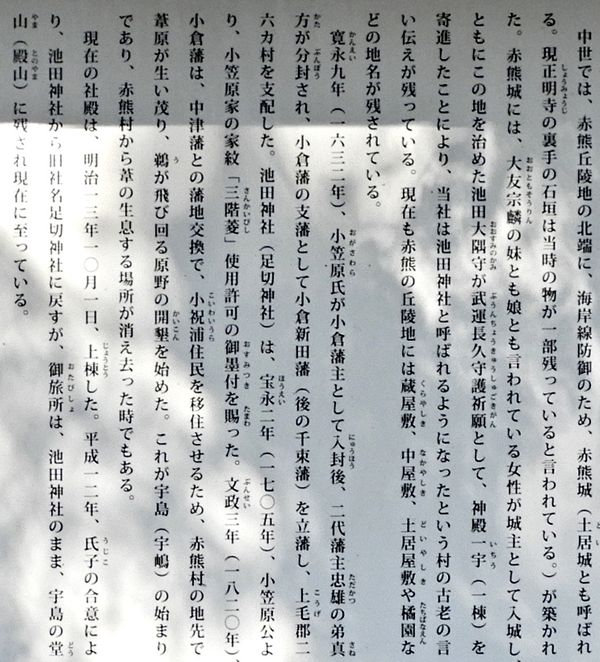 中世では、赤熊丘陵地の北端に、海岸線防御のため、赤熊城（土居城とも呼ばれ
る。現正明寺の裏手の石垣は当時の物が一部残っていると言われている。）が築かれ
た。赤熊城には、大友宗麟の妹とも娘とも言われている女性が城主として入城し
ともにこの地を治めた池田大隅守が武運長久守護祈願として、神殿一宇（一棟）を
寄進したことにより、当社は池田神社と呼ばれるようになったという村の古老の言
い伝えが残っている。現在も赤熊の丘陵地には蔵屋敷、中屋敷、土居屋敷や橘園な
どの地名が残されている。
寛永九年（一六三二年）、小笠原氏が小倉藩主として入封後、二代藩主忠雄の弟真
方が分封され、小倉藩の支藩として小倉新田藩（後の千束藩）を立藩し、上毛郡二
六カ村を支配した。池田神社（足切神社）は、宝永二年（一七〇五年）、小笠原公よ
り、小笠原家の家紋「三階菱」使用許可の御墨付を賜った。文政三年（一八二〇年）、
小倉藩は、中津藩との藩地交換で、小祝浦住民を移住させるため、赤熊村の地先で
葦原が生い茂り、鵜が飛び回る原野の開墾を始めた。これが宇島（宇嶋）の始まり
であり、赤熊村から葦の生息する場所が消え去った時でもある。
現在の社殿は、明治一三年一〇月一日、上棟した。平成一二年、氏子の合意によ
り、池田神社から旧社名足切神社に戻すが、御旅所は、池田神社のまま、宇島の堂
山（殿山）に残され現在に至っている。